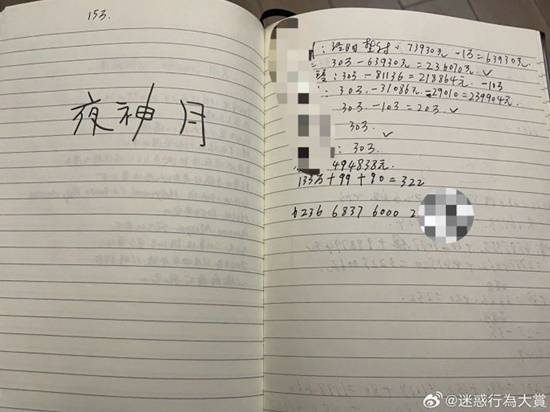 153.
夜神月
73930元 -1万=63930元
30万-63930元=236070元 ✓
30万-81136=218864元 -10万
30万-31086元-29010=239904元.
30万-10万=20万 ✓
30万. ✓
:30万.
494838元.
133万+99+90=322
0236 6837 6000 2
@迷惑行為大賞